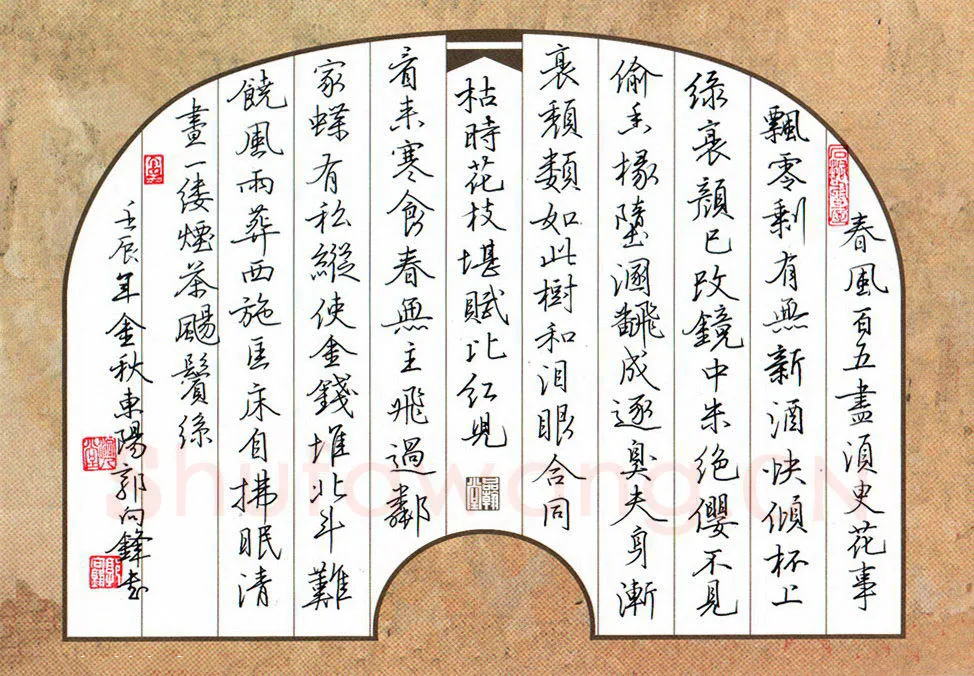 春風百五盡須臾花事
飄零剩有無新酒快傾杯上
綠衰顏已改鏡中朱絕纓不見
偷香掾墮溷翻成逐臭夫身漸
衰頹類如此樹和泪眼合同
枯時花枝堪賦比紅兒
看来寒食春無主飛過鄰
家蝶有私縱使金錢堆北斗難
饒風雨葬西施匡床自拂眠清
晝一縷煙茶颺鬢絲
壬辰年金秋東陽郭向鋒書
Shufawang.CN